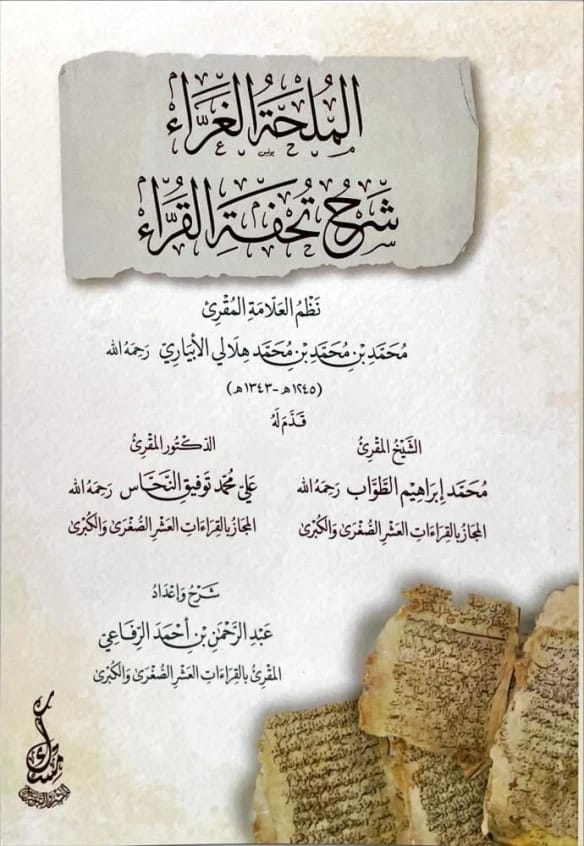 المُلحَةُ الغَرَّاء
شَرْحُ تُحْفَةِ القُرَّاء
نَظْمُ العَلَّامَةِ المُقْرِئِ
مُحَمَّدِ بْنِ مُحَمَّدِ بْنِ مُحَمَّد هِلَالِي الأَبْيَارِيّ رَحِمَهُ الله
(١٢٤٥هـ - ١٣٤٣هـ)
قَدَّمَ لَهُ
الشَّيْخُ المُقْرِئُ
مُحَمَّد إِبْرَاهِيم الطَّوَّاب رَحِمَهُ الله
المُجَازُ بِالقِرَاءَاتِ العَشْرِ الصُّغْرَىٰ وَالكُبْرَىٰ
الدُّكْتُور المُقْرِئُ
عَلِيّ مُحَمَّد تَوْفِيق النَّحَّاس رَحِمَهُ الله
المُجَازُ بِالقِرَاءَاتِ العَشْرِ الصُّغْرَىٰ وَالكُبْرَىٰ
شَرْحُ وَإِعْدَادُ
عَبْدِ الرَّحْمَٰنِ بْنِ أَحْمَدَ الرِّفَاعِيّ
المُقْرِئُ بِالقِرَاءَاتِ العَشْرِ الصُّغْرَىٰ وَالكُبْرَىٰ